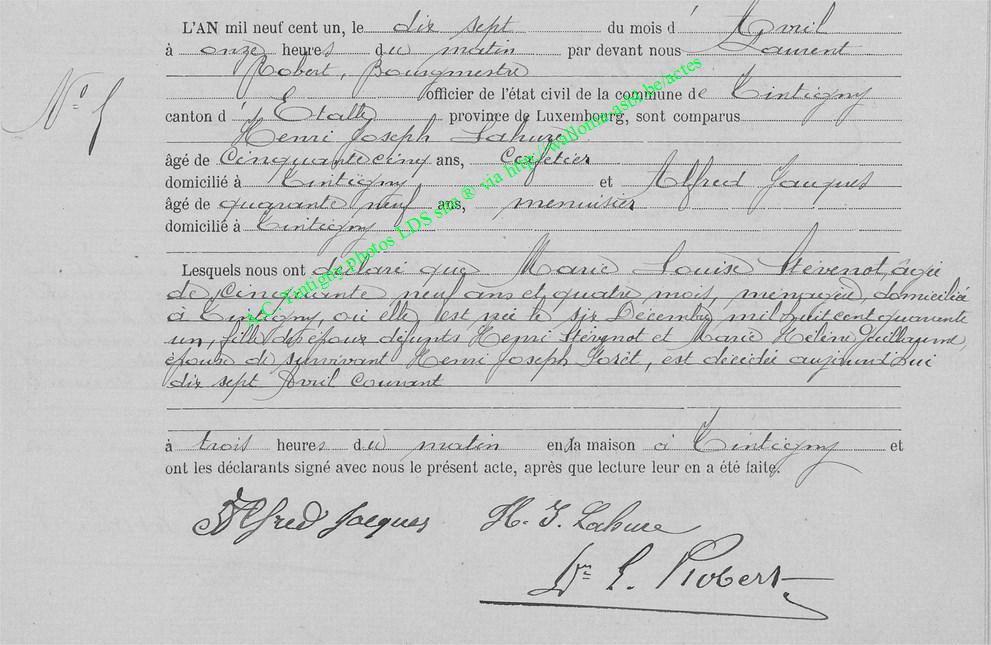 L'AN mil neuf cent un, le dix sept du mois d' Avril
à onze heures du matin par devant nous Laurent
Robert, Bourgmestre
officier de l'état civil de la commune de Tintigny
N° 5
canton d' Etalle province de Luxembourg, sont comparus
Henri Joseph Lahure
âgé de Cinquante cinq ans, Cafetier
domicilié à Tintigny et Alfred Jacques
âgé de quarante neuf ans, menuisier
domicilié à Tintigny
Lesquels nous ont déclaré que Marie Louise Stévenot, âgée
de Cinquante neuf ans et quatre mois, ménagère, domiciliée
à Tintigny, où elle est née le six Décembre mil huit cent quarante
un, fille des époux défunts Henri Stévenot et Marie Hélène
épouse de survivant Henri Joseph, est décédée aujourd'hui
dix sept Avril courant
à trois heures du matin en sa maison à Tintigny et
ont les déclarants signé avec nous le présent acte, après que lecture leur en a été faite.
Alfred Jacques H. J. Lahure
L. Robert
A.C. Tintigny photos LDS site ® via http://wallonia.asbl.be/actes